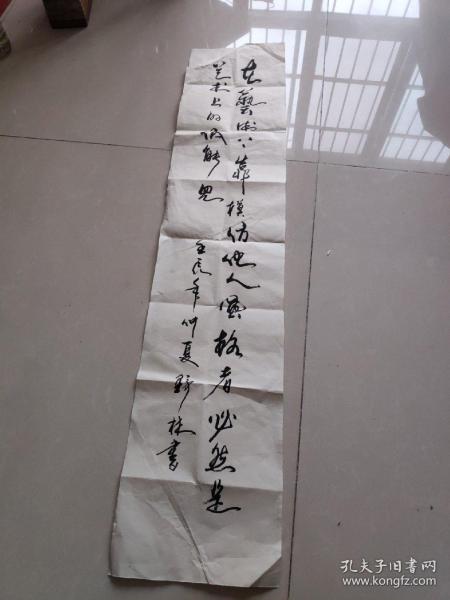 在藝術上靠模仿他人風格者必然是
艺术上的低能児
壬辰年仲夏 林書
孔夫子旧书网
www.kongfz.com